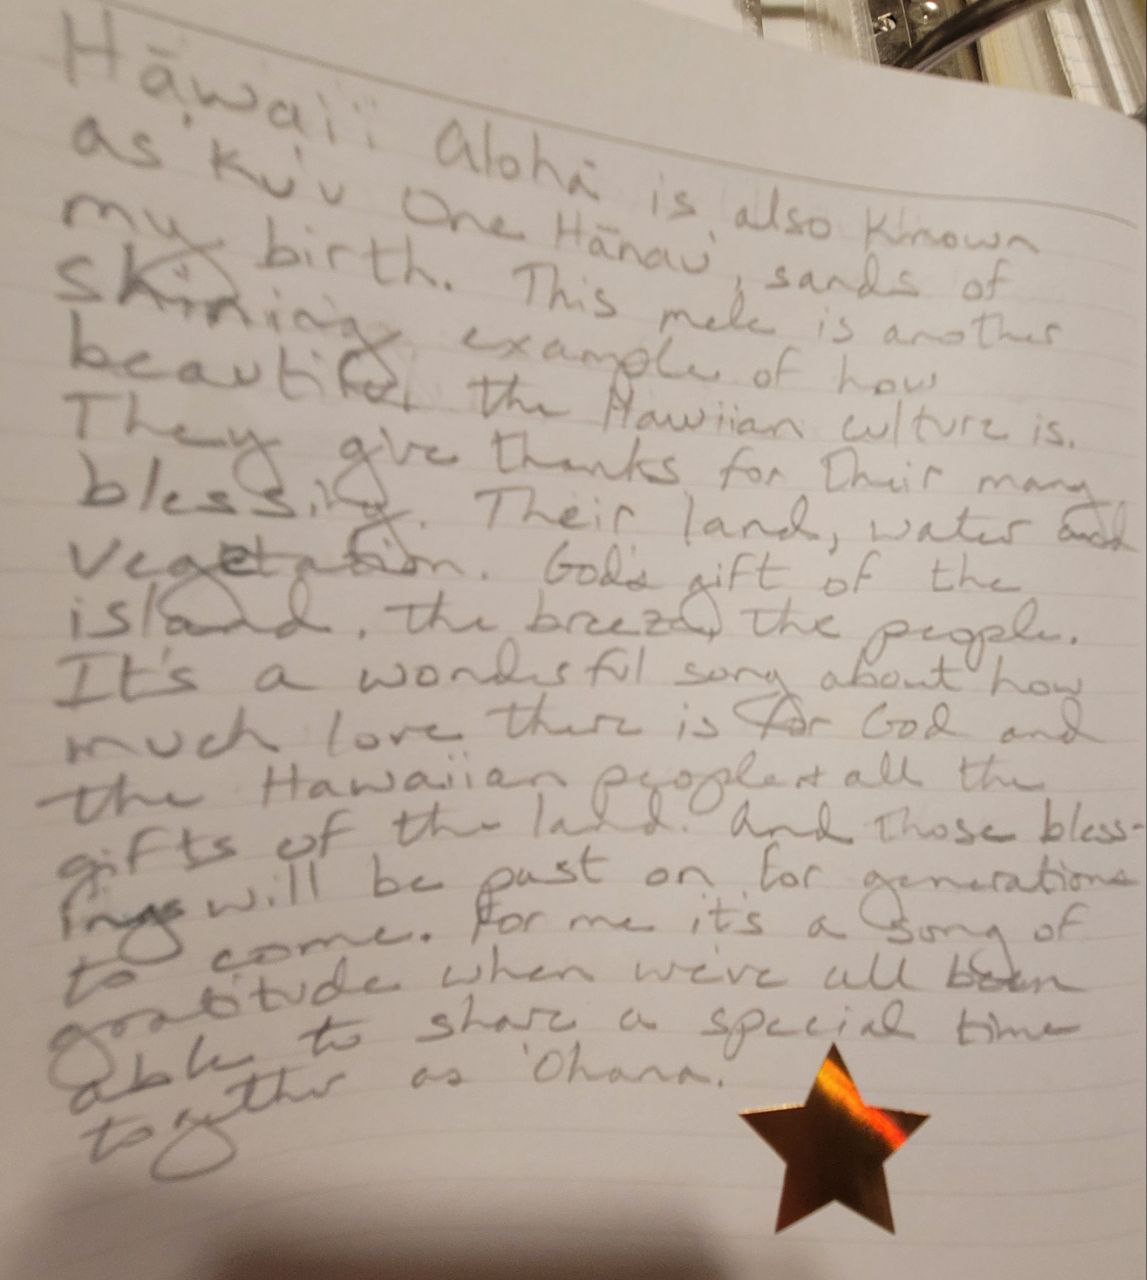 Hāwaiʻi Alohā is also Known
as Ku'u One Hānau', sands of
my birth. This mele is another
shining example of how
beautiful the Hawiian culture is.
They give thanks for their many
blessing. Their land, water and
vegetation. God's gift of the
island, the breeze, the people.
It's a wonderful song about how
much love there is for God and
the Hawaiian people + all the
gifts of the land. And those bless-
ings will be past on for generations
to come. For me it's a song of
gratitude when we've all been
able to share a special time
together as 'Ohana.